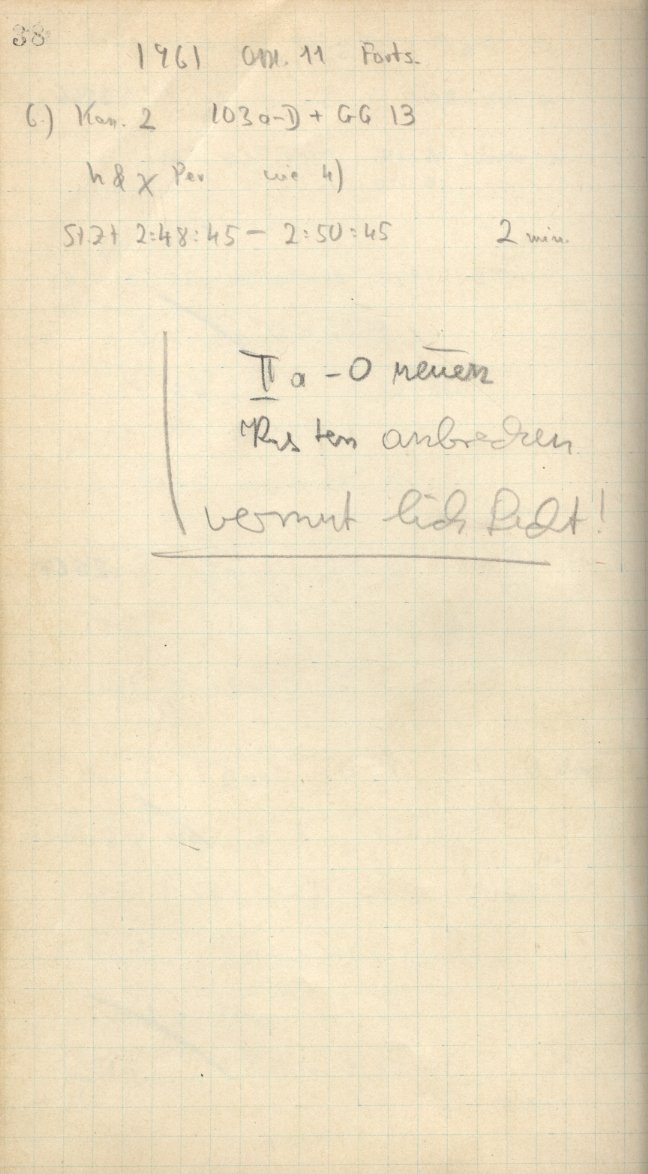 38
1961 Okt. 11 Forts.
6.) Kam. 2 103a-D + GG 13
h & χ Per wie 4)
StZt 2:48:45 - 2:50:45 2 min.
II a - O neuen
Kasten anbrechen
vermutlich Licht!